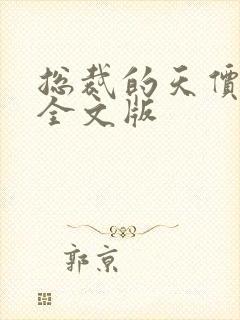 总裁的天價
全文版
郭京